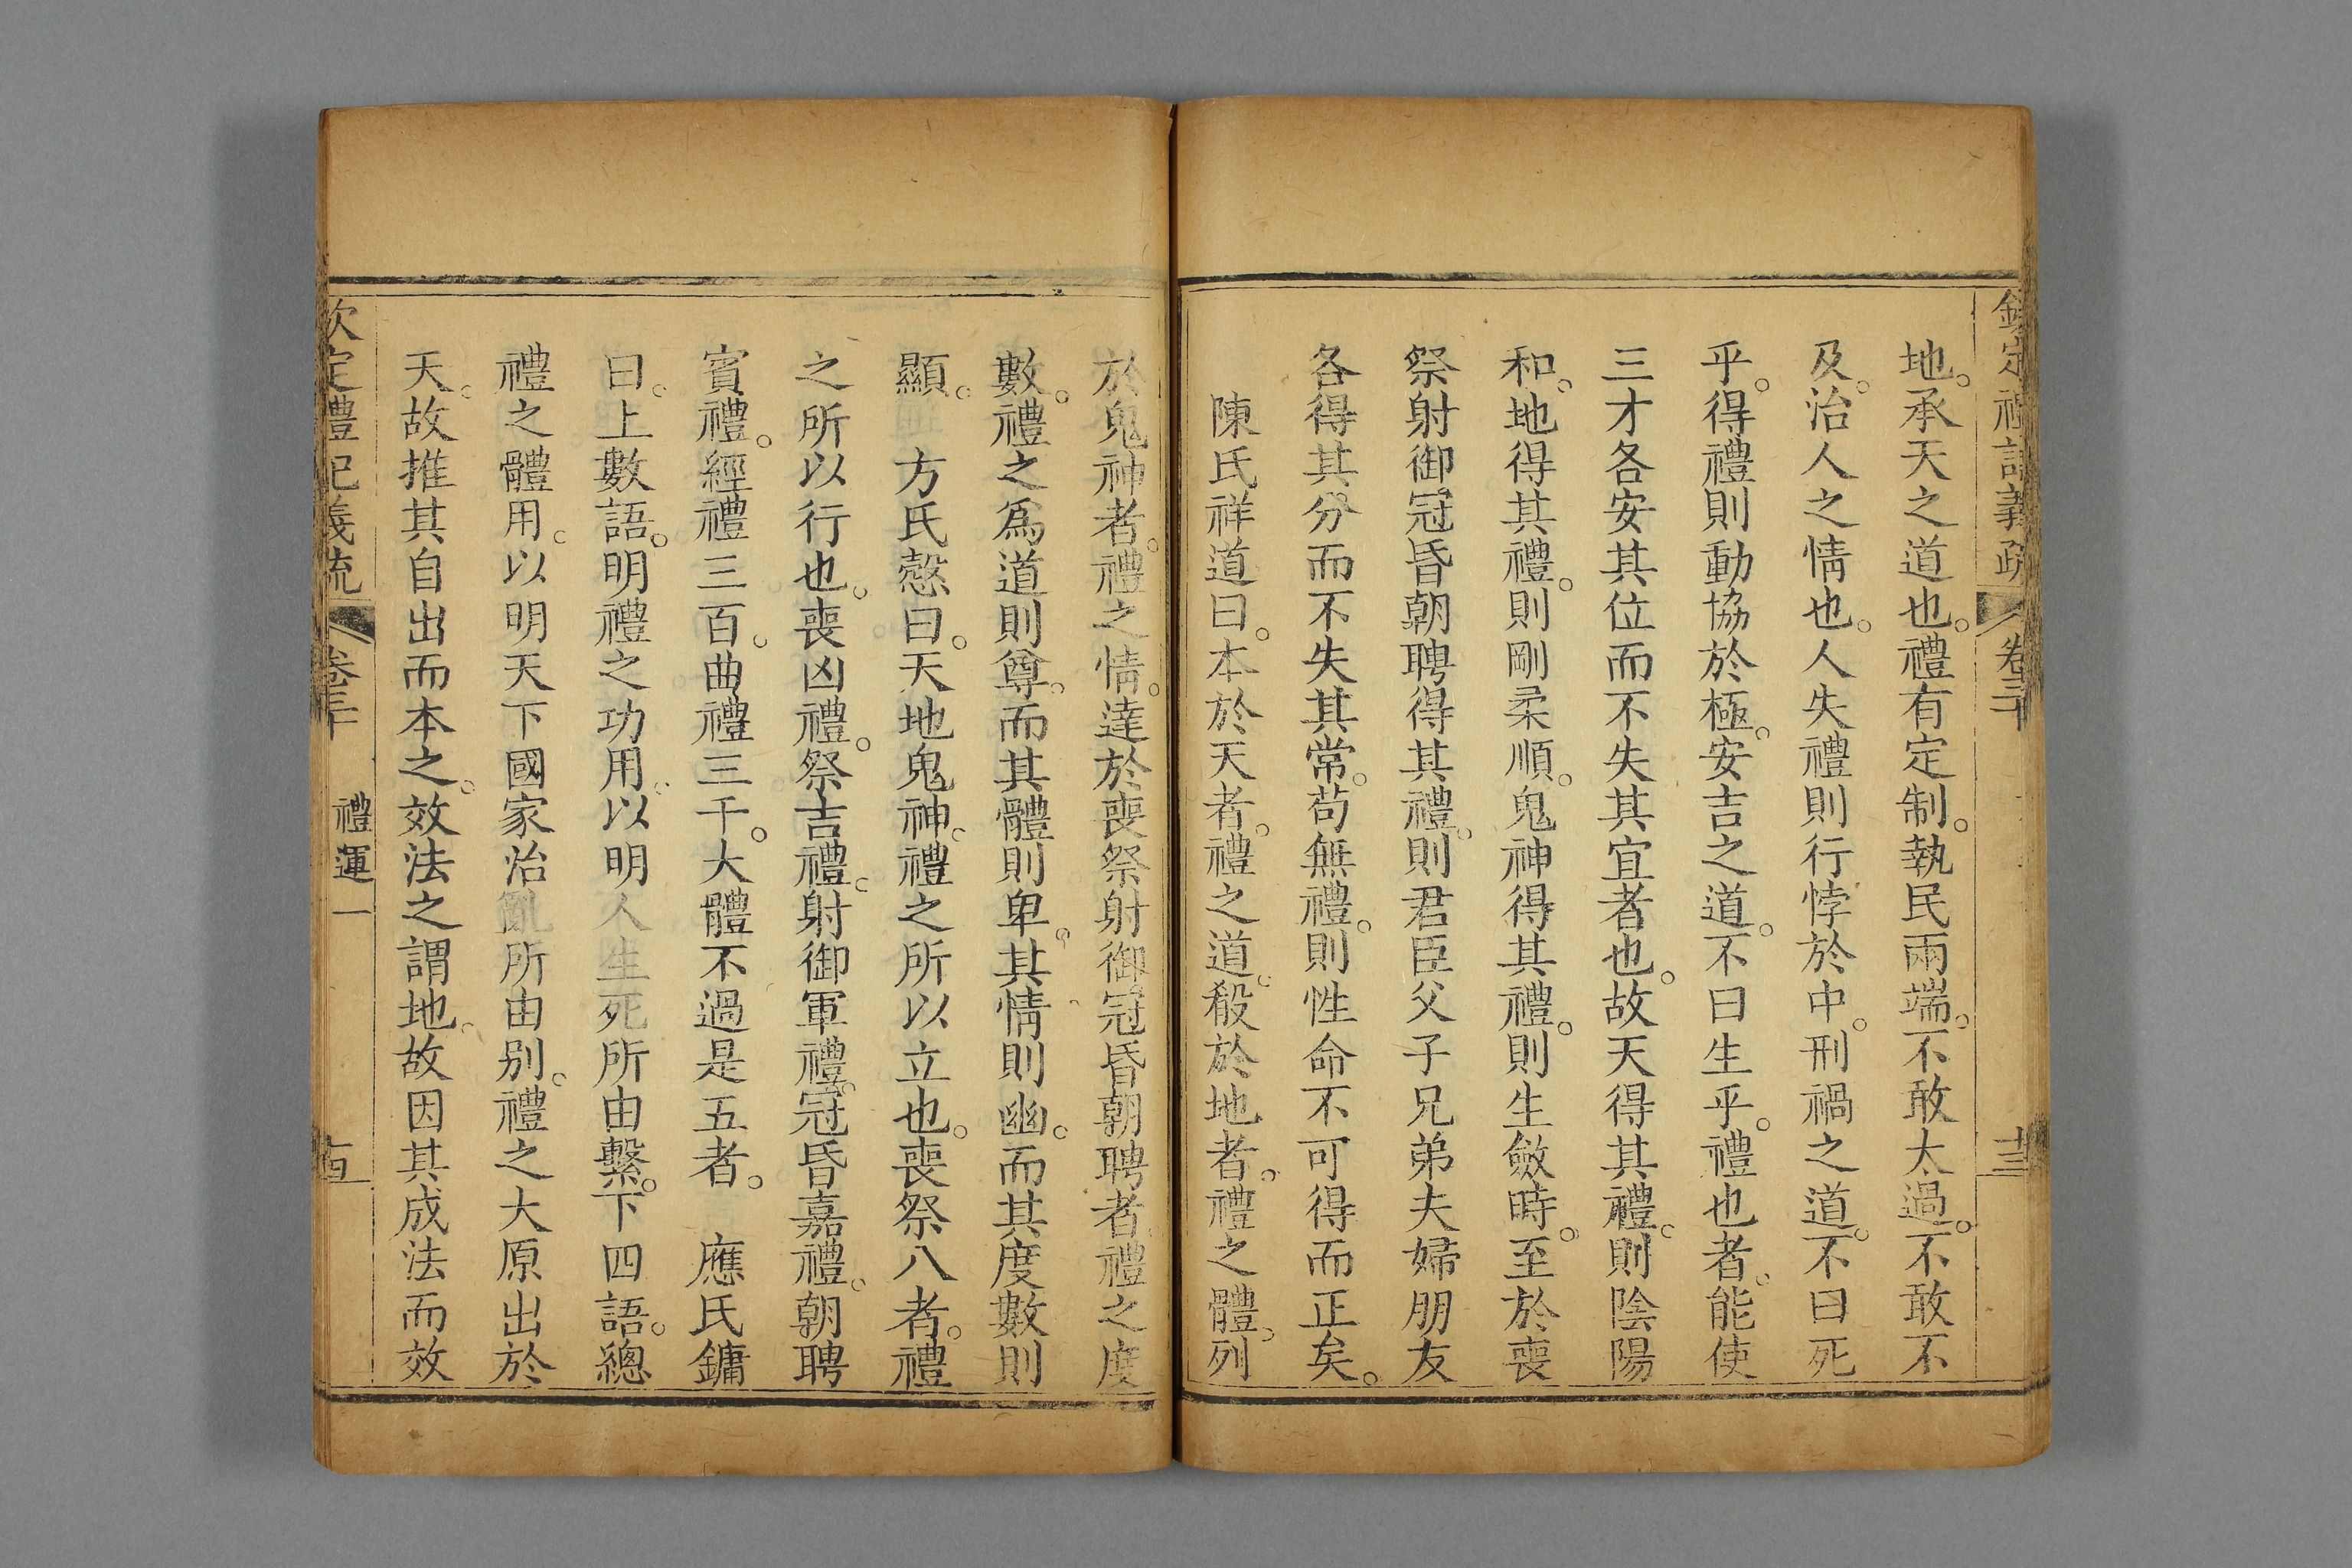 欽定禮記義疏 卷三十 十三
地。承天之道也。禮有定制。執民兩端。不敢太過。不敢不
及。治人之情也。人失禮則行悖於中。刑禍之道。不曰死
乎。得禮則動協於極。安吉之道。不曰生乎。禮也者。能使
三才各安其位而不失其宜者也。故天得其禮。則陰陽
和。地得其禮。則剛柔順。鬼神得其禮。則生斂時。至於喪
祭射御。冠昏朝聘得其禮。則君臣父子兄弟夫婦朋友
各得其分。而不失其常。苟無禮。則性命不可得而正矣。
陳氏祥道曰。本於天者。禮之道。殽於地者。禮之體。列
於鬼神者。禮之情。達於喪祭射御。冠昏朝聘者。禮之度
數。禮之爲道則尊。而其體則卑。其情則幽。而其度數則
顯。 方氏慤曰。天地鬼神。禮之所以立也。喪祭八者。禮
之所以行也。喪凶禮。祭吉禮。射御軍禮。冠昏嘉禮。朝聘
賓禮。經禮三百。曲禮三千。大體不過是五者。 應氏鏞
曰。上數語。明禮之功用。以明人生死所由繫。下四語。總
禮之體用。以明天下國家治亂所由别。禮之大原出於
天。故推其自出而本之。效法之謂地。故因其成法而效
欽定禮記義疏 卷三十 禮運一